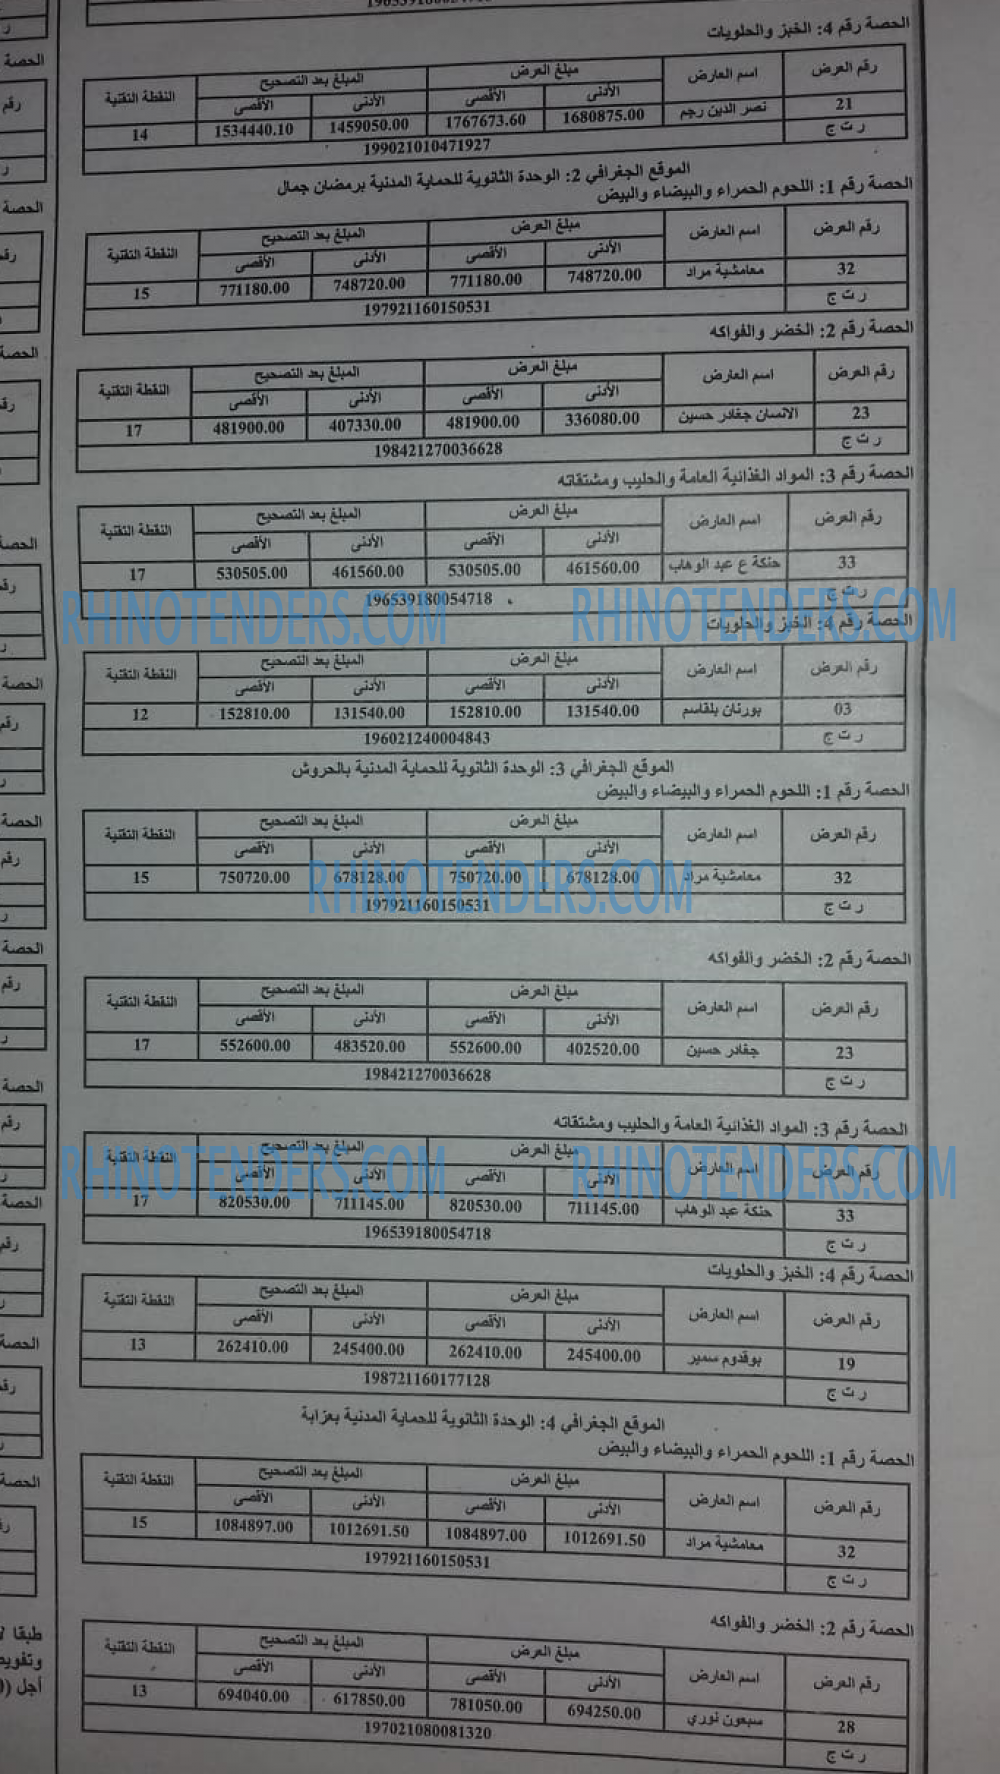 الحصة رقم 4: الخبز والحلويات
رقم العرض اسم العارض مبلغ العرض المبلغ بعد التصحيح النقطة التقنية
الأدنى الأقصى الأدنى الأقصى
21 نصر الدين رجم 1680875.00 1767673.60 1459050.00 1534440.10 14
ر ت ج 199021010471927
الموقع الجغرافي 2: الوحدة الثانوية للحماية المدنية برمضان جمال
الحصة رقم 1: اللحوم الحمراء والبيضاء والبيض
رقم العرض اسم العارض مبلغ العرض المبلغ بعد التصحيح النقطة التقنية
الأدنى الأقصى الأدنى الأقصى
32 معامشية مراد 748720.00 771180.00 748720.00 771180.00 15
ر ت ج 197921160150531
الحصة رقم 2: الخضر والفواكه
رقم العرض اسم العارض مبلغ العرض المبلغ بعد التصحيح النقطة التقنية
الأدنى الأقصى الأدنى الأقصى
23 الانسان جغادر حسين 336080.00 481900.00 407330.00 481900.00 17
ر ت ج 198421270036628
الحصة رقم 3: المواد الغذائية العامة والحليب ومشتقاته
رقم العرض اسم العارض مبلغ العرض المبلغ بعد التصحيح النقطة التقنية
الأدنى الأقصى الأدنى الأقصى
33 حنكة ع عبد الوهاب 461560.00 530505.00 461560.00 530505.00 17
ر ت ج 196539180054718
RHINOTENDERS.COM RHINOTENDERS.COM
الحصة رقم 4: الخبز والحلويات
رقم العرض اسم العارض مبلغ العرض المبلغ بعد التصحيح النقطة التقنية
الأدنى الأقصى الأدنى الأقصى
03 بورنان بلقاسم 131540.00 152810.00 131540.00 152810.00 12
ر ت ج 196021240004843
الموقع الجغرافي 3: الوحدة الثانوية للحماية المدنية بالحروش
الحصة رقم 1: اللحوم الحمراء والبيضاء والبيض
رقم العرض اسم العارض مبلغ العرض المبلغ بعد التصحيح النقطة التقنية
الأدنى الأقصى الأدنى الأقصى
32 معامشية مراد 678128.00 750720.00 678128.00 750720.00 15
RHINOTENDERS.COM
ر ت ج 197921160150531
الحصة رقم 2: الخضر والفواكه
رقم العرض اسم العارض مبلغ العرض المبلغ بعد التصحيح النقطة التقنية
الأدنى الأقصى الأدنى الأقصى
23 جغادر حسين 402520.00 552600.00 483520.00 552600.00 17
ر ت ج 198421270036628
الحصة رقم 3: المواد الغذائية العامة والحليب ومشتقاته
رقم العرض اسم العارض مبلغ العرض المبلغ بعد التصحيح النقطة التقنية
RHINOTENDERS.COM RHINOTENDERS.COM
الأدنى الأقصى الأدنى الأقصى
33 حنكة عبد الوهاب 711145.00 820530.00 711145.00 820530.00 17
ر ت ج 196539180054718
الحصة رقم 4: الخبز والحلويات
رقم العرض اسم العارض مبلغ العرض المبلغ بعد التصحيح النقطة التقنية
الأدنى الأقصى الأدنى الأقصى
19 بوقدوم سمير 245400.00 262410.00 245400.00 262410.00 13
ر ت ج 198721160177128
الموقع الجغرافي 4: الوحدة الثانوية للحماية المدنية بعزابة
الحصة رقم 1: اللحوم الحمراء والبيضاء والبيض
رقم العرض اسم العارض مبلغ العرض المبلغ بعد التصحيح النقطة التقنية
الأدنى الأقصى الأدنى الأقصى
32 معامشية مراد 1012691.50 1084897.00 1012691.50 1084897.00 15
ر ت ج 197921160150531
الحصة رقم 2: الخضر والفواكه
رقم العرض اسم العارض مبلغ العرض المبلغ بعد التصحيح النقطة التقنية
الأدنى الأقصى الأدنى الأقصى
28 سبعون نوري 694250.00 781050.00 617850.00 694040.00 13
ر ت ج 197021080081320